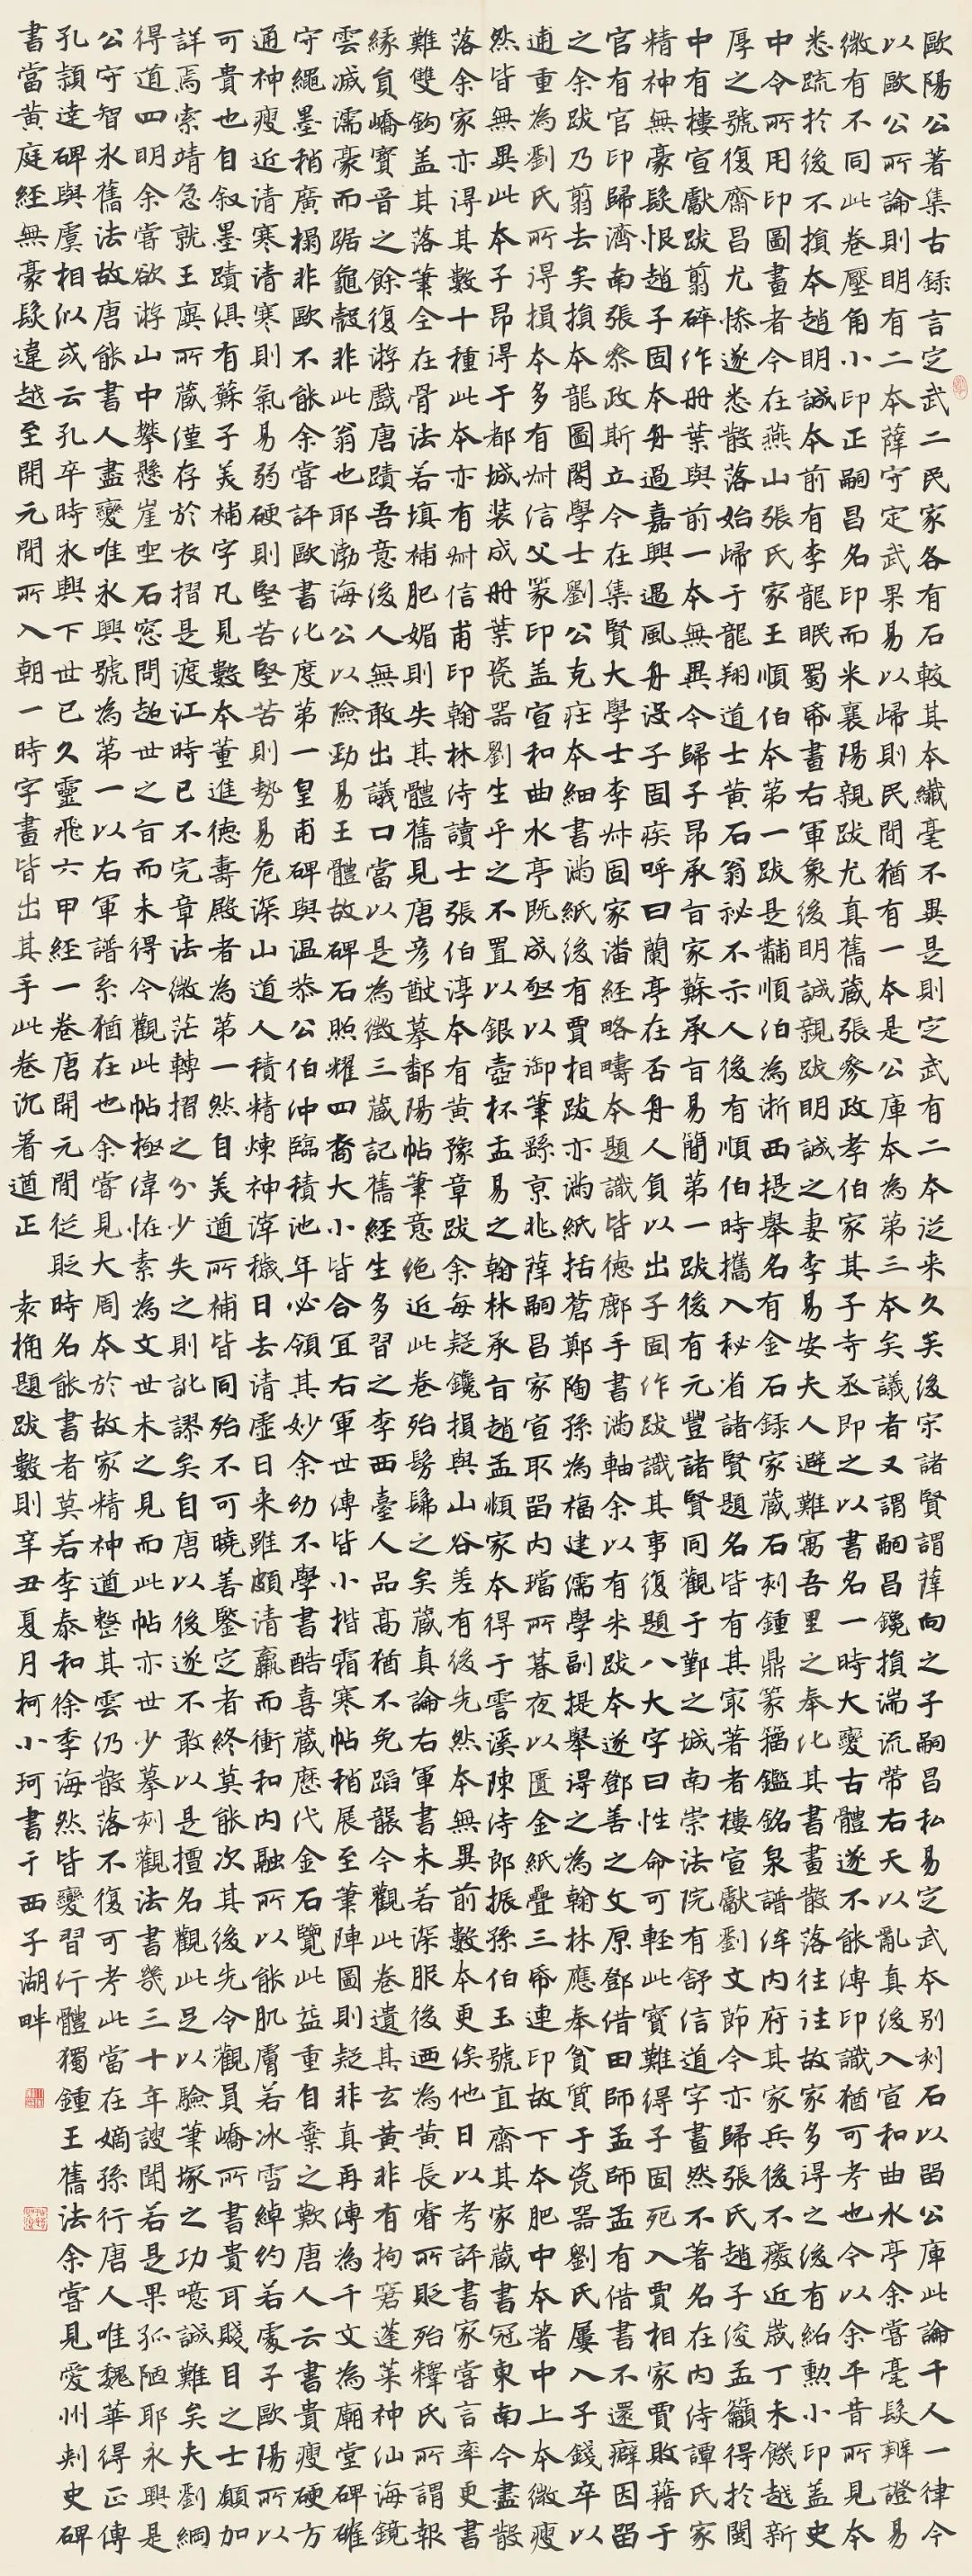 歐陽公著集古録言定武二民家各有石較其本纖毫不異是則定武有二本從来久矣後宋諸賢謂薛向之子嗣昌私易定武本別刻石以留公庫此論千人一律今
以歐公所論則明有二本薛守定武果易以歸則民間猶有一本是公庫本為第三本矣議者又謂嗣昌鑱損湍流帶右天以亂真後入宣和曲水亭余嘗毫髮辨證易
微有不同此卷壓角小印正嗣昌名印而米襄陽親跋尤真舊藏張參政孝伯家其子寺丞即之以書名一時大變古體遂不能傳印識猶可考也今以余平昔所見本
悉疏於後不損本趙明誠本前有李龍眠蜀帋畫右軍象後明誠親跋明誠之妻李易安夫人避難寓吾里之奉化其書畫散落往往故家多得之後有紹勳小印蓋史
中令所用印圖畫者今在燕山張氏家王順伯本第一跋是黼順泊為浙西提舉名有金石録家藏石刻鍾鼎篆籀鑑銘泉譜侔內府其家兵後不廢近歲丁未小饑越新
厚之號復齋昌尤悕遂悉散落始歸于龍翔道士黃石翁祕不示人後有順伯時攜入秘省諸賢題名皆有其冣著者樓宣獻劉文節今亦歸張氏趙子俊孟籲得於閩
中有樓宣獻跋剪碎作册葉與前一本無異今歸子昂承旨家蘇承旨易簡第一跋後有元豐諸賢同觀于鄞之城南崇法院有舒信道字畫然不著名在内侍譚氏家
精神無豪髮恨趙子固本舟過嘉興遇風舟沒子固疾呼曰蘭亭在否舟人負以出子固作跋識其事復題八大字曰性命可輕此寶難得子固死入賈相家賈敗籍于
官有官印歸濟南張參政斯立今在集賢大學士李叔固家潘經略疇本題識皆德廊手書滿軸余以有米跋本遂鄧善之文原鄧借田師孟師孟有借書不還癖因留
之余跋乃翦去矣損本龍圖閣學士劉公克莊本細書滿紙後有賈相跋亦滿紙括蒼鄭陶孫為福建儒學副提舉得之為翰林應奉貧質于瓷器劉氏屢入子錢卒以
逋重為劉氏所得損本多有信父篆印蓋宣和曲水亭既成壑以御筆繇京兆薛嗣昌家宣取留内璫所暮夜以匱金紙疊三帋連印故下本肥中本著中上本微瘦
然皆無異此本子昂得于都城装成册葉瓷器劉生乎之不置以銀壺杯盂易之翰林承旨趙孟順家本得于霅溪陳侍郎振孫伯玉號直齋其家藏書冠東南今盡散
落余家亦得其數十種此本亦有信甫印翰林侍讀士張伯淳本有黃豫章跋余每疑鑱損與山谷差有後先然本無異前數本更俟他日以考評書家嘗言率更書
難雙鉤蓋其落筆全在骨法若填補肥媚則失其體舊見唐彦猷摹鄱陽帖筆意絕近此卷殆髣髴之矣藏真論右軍書未若深服後迺為黃長睿所貶殆釋氏所謂報
緣負嶠寳音之餘復游戲唐蹟吾意後人無敢出議口當以是為徵三藏記舊經生多習之李西臺人品高猶不免蹈襲今觀此卷遺其玄黃非有拘窘蓬萊神仙海鏡
雲滅濡豪而踞龜殼非此翁也耶渤海公以險勁易王體故碑石煕耀四裔大小皆合宜右軍世傳皆小楷霜寒帖稍展至筆陣圖則疑非真再傳為千文為廟堂碑確
守繩墨稍廣榻非歐不能余嘗評歐書化度第一皇甫碑與温恭公伯仲臨積池年必領其妙余幼不學書酷喜藏歷代金石覽此益重自棄之歎唐人云書貴瘦硬方
通神瘦近清寒清寒則氣易弱硬則堅苦堅苦則勢易危深山道人積精煉神滓穢日去清虛日来雖頗清羸而衝和内融所以能肌膚若冰雪綽約若處子歐陽所以
可貴也自叙墨蹟俱有蘇子美補字凡見數本董進德壽殿者為第一然自美遒所補皆同殆不可曉善鑒定者終莫能次其後先今觀員嶠所書貴耳賤目之士願加
詳焉索靖急就王廙所藏僅存於衣摺是渡江時已不完章法微茫轉摺之分少失之則訛謬矣自唐以後遂不敢以是擅名觀此足以驗筆塚之功噫誠難矣夫劉綱
得道四明余嘗欲游山中攀懸崖坐石窓問趂世之旨而未得今觀此帖極偉恠素為文世未之見而此帖亦世少摹刻觀法書幾三十年謏聞若是果孤陋耶永興是
公守智永舊法故唐能書人盡變唯永興號為第一以右軍譜系猶在也余嘗見大周本於故家精神遒整其雲仍散落不復可考此當在嫡孫行唐人唯魏華得正傳
孔穎達碑與虞相似或云孔卒時永興下世已久靈飛六甲經一卷唐開元間從貶時名能書者莫若李泰和徐季海然皆變習行體獨鍾王舊法余嘗見愛州刺史碑
書當黃庭經無豪髮違越至開元間所入朝一時字畫皆出其手此卷沉着遒正 袁桷題跋數則辛丑夏月柯小珂書于西子湖畔